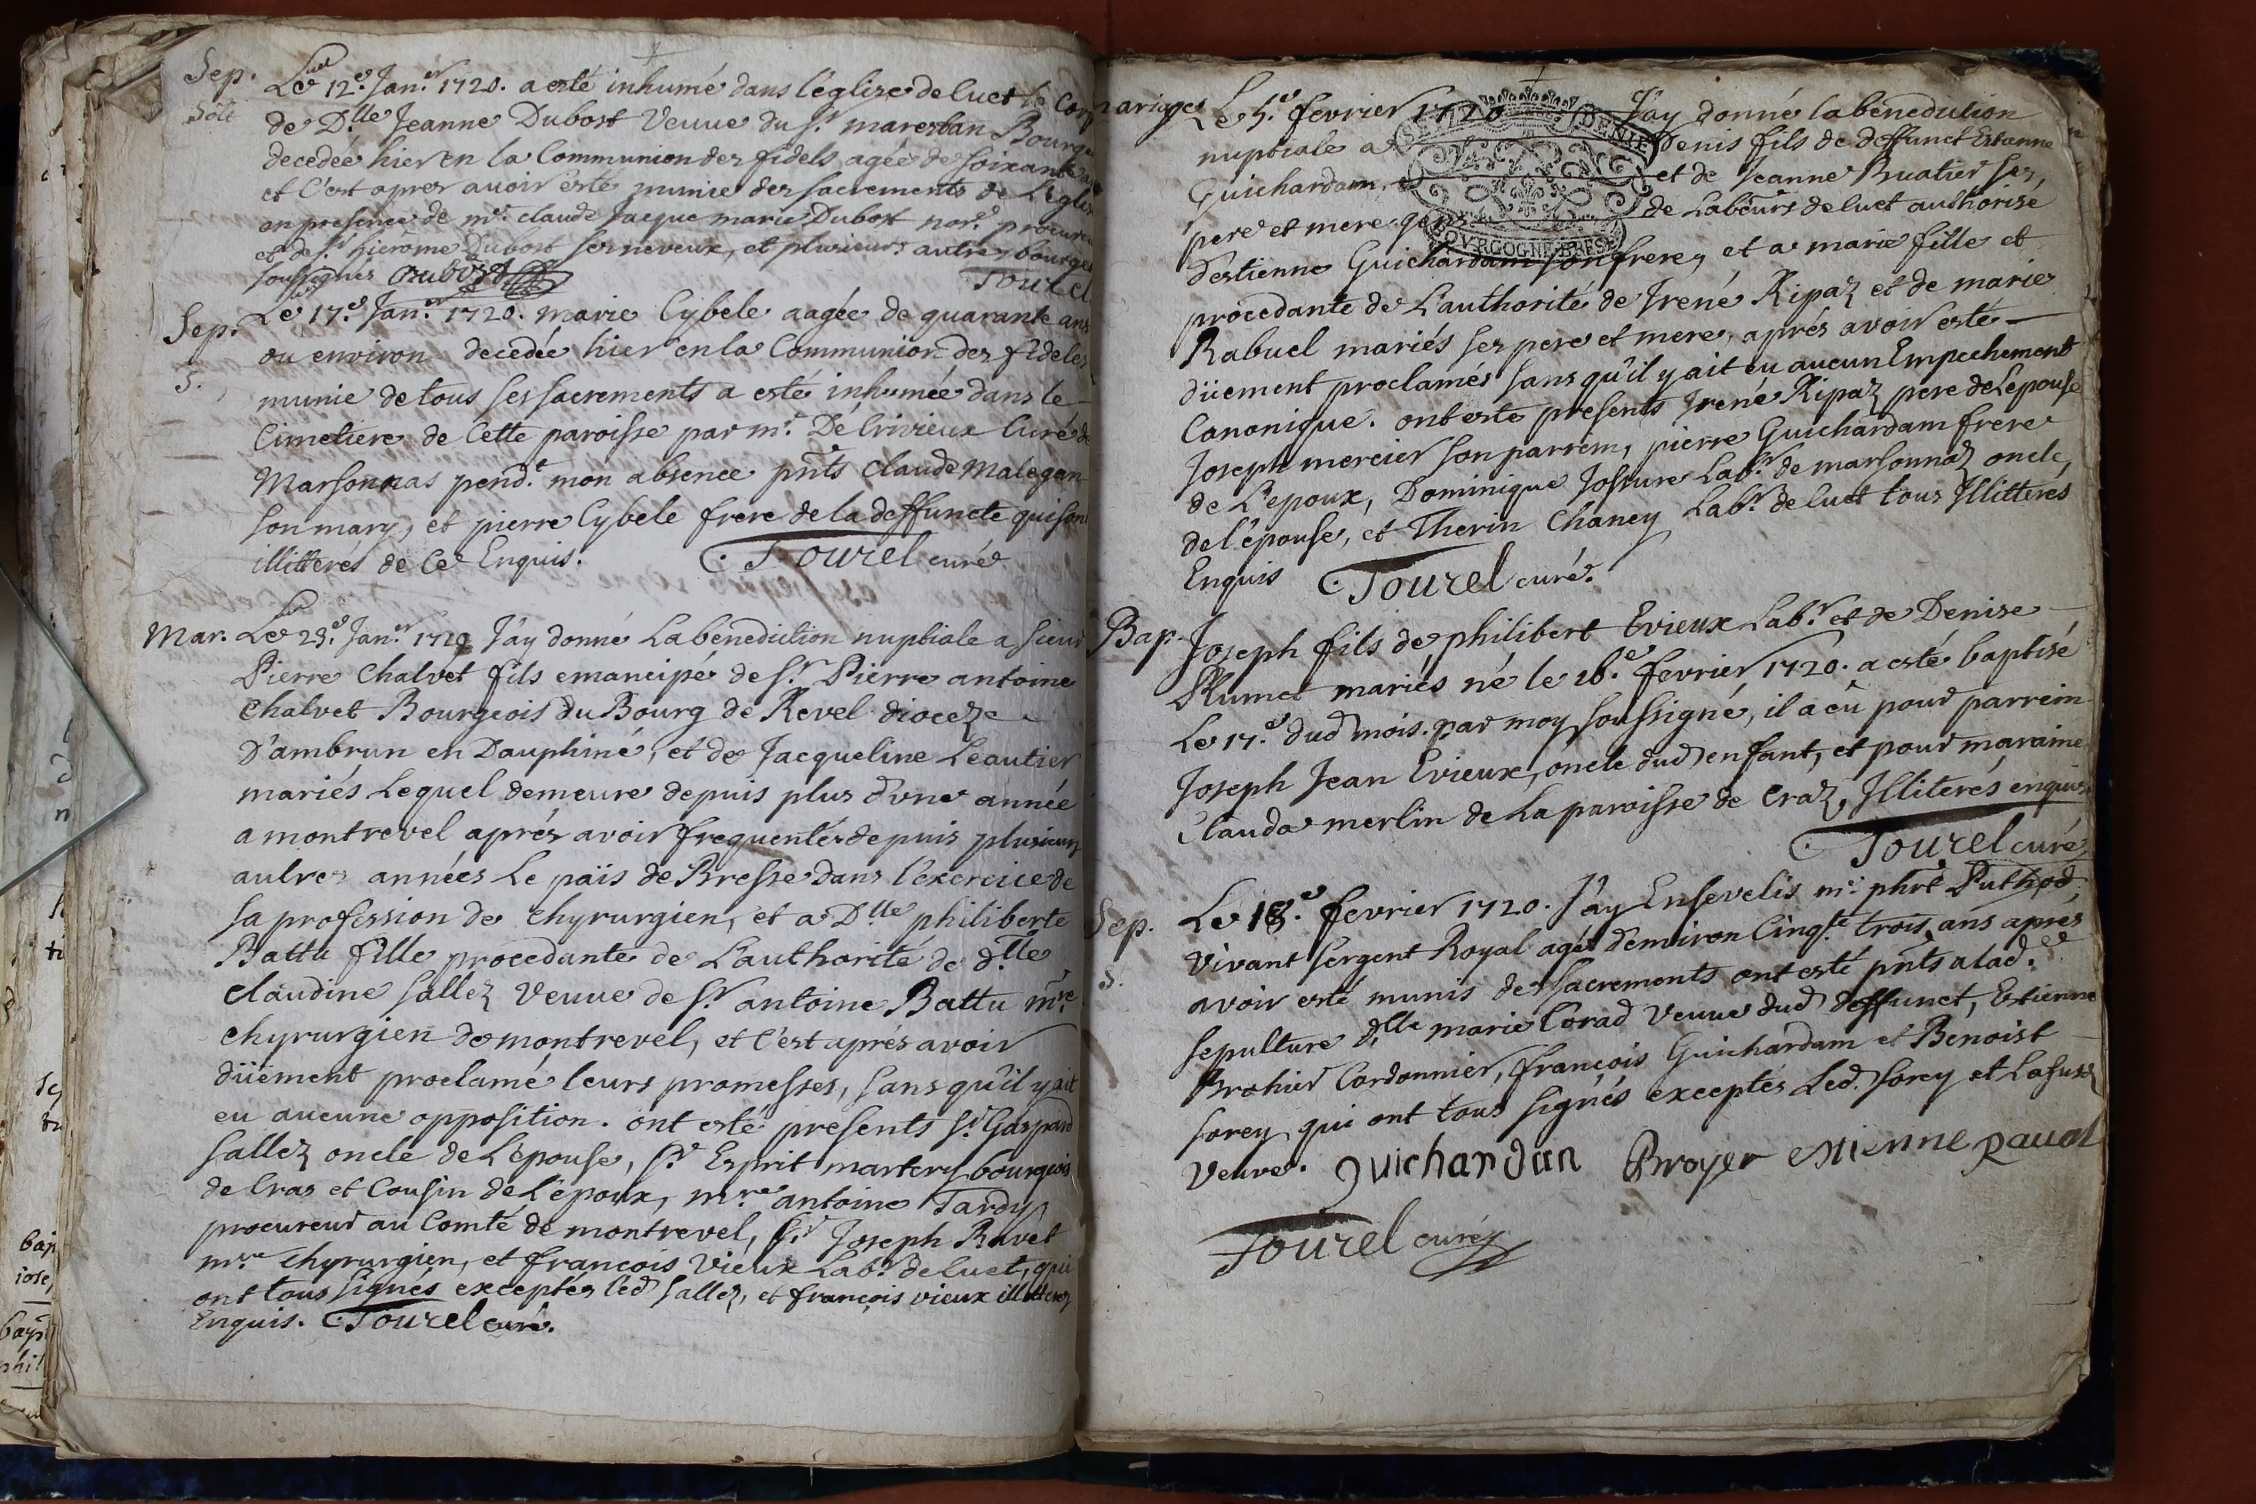 Sep. Le 12.e Jan.er 1720. a esté inhumé dans l'eglise de Cuet le Corp
de D.lle Jeanne Dubost Veuve du S.r maresban Bourge
decedée hier en la Communion des fidels, agée de soixante
et c'est apres avoir esté munie des sacrements de L'eglis
en presence de m.re claude Jacque marie Dubost nor.e procure
et de S.r hierome Dubost ses neveux, et plusieurs autres bourge
soussignés Dubost Tourel
Sep. Le 17.e Jan.er 1720. marie Cybele aagée de quarante ans
ou environ decedée hier en la Communion des fideles
S. munie de tous ses sacrements a esté inhumée dans le
Cimetiere de Cette paroisse par m.r De Crivieux Curé de
Marsonnas pend.t mon absence pnts Claude Malegan
son mary, et pierre Cybele frere de la deffuncte qui son
illitterés de Ce Enquis. Tourel curé
Mar. Le 23.e Jan.er 1720 J'ay donné La benediction nuptiale a sieur
Pierre Chalvet fils emancipé de S.r Pierre antoine
Chalvet Bourgeois du Bourg de Revel dioceze
D'ambrun en Dauphiné, et de Jacqueline Leautier
mariés Lequel demeure depuis plus d'une année
a montrevel aprés avoir frequentés depuis plusieurs
autres années Le païs de Bresse dans l'exercice de
sa profession de Chyrurgien, et a D.lle philiberte
Battu fille procedante de L'authorité de d.lle
Claudine Sallez Veuve de S.r antoine Battu m.re
Chyrurgien de montrevel, et c'est aprés avoir
düement proclamé leurs promesses, sans qu'il y ait
eu aucune opposition. ont esté presents S.r Gaspard
Sallez oncle de L'epouse, S.r Esprit martery bourgeois
de Cras et Cousin de L'epoux, m.re antoine Tardy
procureur au Comté de montrevel, S.r Joseph Ravet
m.re Chyrurgien, et françois Vieux Lab.r de Cuet, qui
ont tous signés exceptés led Sallez, et françois vieux illitterez
Enquis. Tourel curé.
mariages Le 5.e fevrier 1720 J'ay donné la benediction
nuptiale a Denis fils de deffunct Estienne
Guichardam, et de Jeanne Buatier ses
pere et mere gens de Labeurs de Cuet authorisé
d'estienne Guichardam son frere, et a marie fille et
procedante de L'authorité de Irené Ripaz et de marie
Rabuel mariés ses pere et mere, aprés avoir esté
düement proclamés sans qu'il y ait eu aucun Empechement
Canonique. ont esté presents Irené Ripaz pere de L'epouse
Joseph mercier son parrein, pierre Guichardam frere
de L'epoux, Dominique Josserme Lab.r de marsonnaz oncle
de l'épouse, et Therin Chaney Lab.r de Cuet tous Illitterés
Enquis Tourel curé.
Bap. Joseph fils de philibert Evieux Lab.r et de Denise
Plumet mariés né le 16.e fevrier 1720. a esté baptisé
Le 17.e dud mois. par moy soussigné, il a eû pour parrein
Joseph Jean Evieux, oncle dud enfant, et pour maraine
Claudа merlin de La paroisse de Craz, Illiterés enquis
Tourel curé
Sep. Le 18.e fevrier 1720. J'ay Ensevelis m.e phrt Puthod
vivant sergent Royal agé d'environ Cinq.te trois ans aprés
S. avoir esté munis des sacrements ont esté pnts a lad.e
sepulture d.lle marie Corad veuve dud deffunct, Estienne
Brohier Cordonnier, françois Guichardam et Benoist
sorey qui ont tous signés exceptés Led. Sorey et Lasusd
veuve. guichardan Broyer etienne ravat
Tourel curé
BOURGOGNE BRESSE